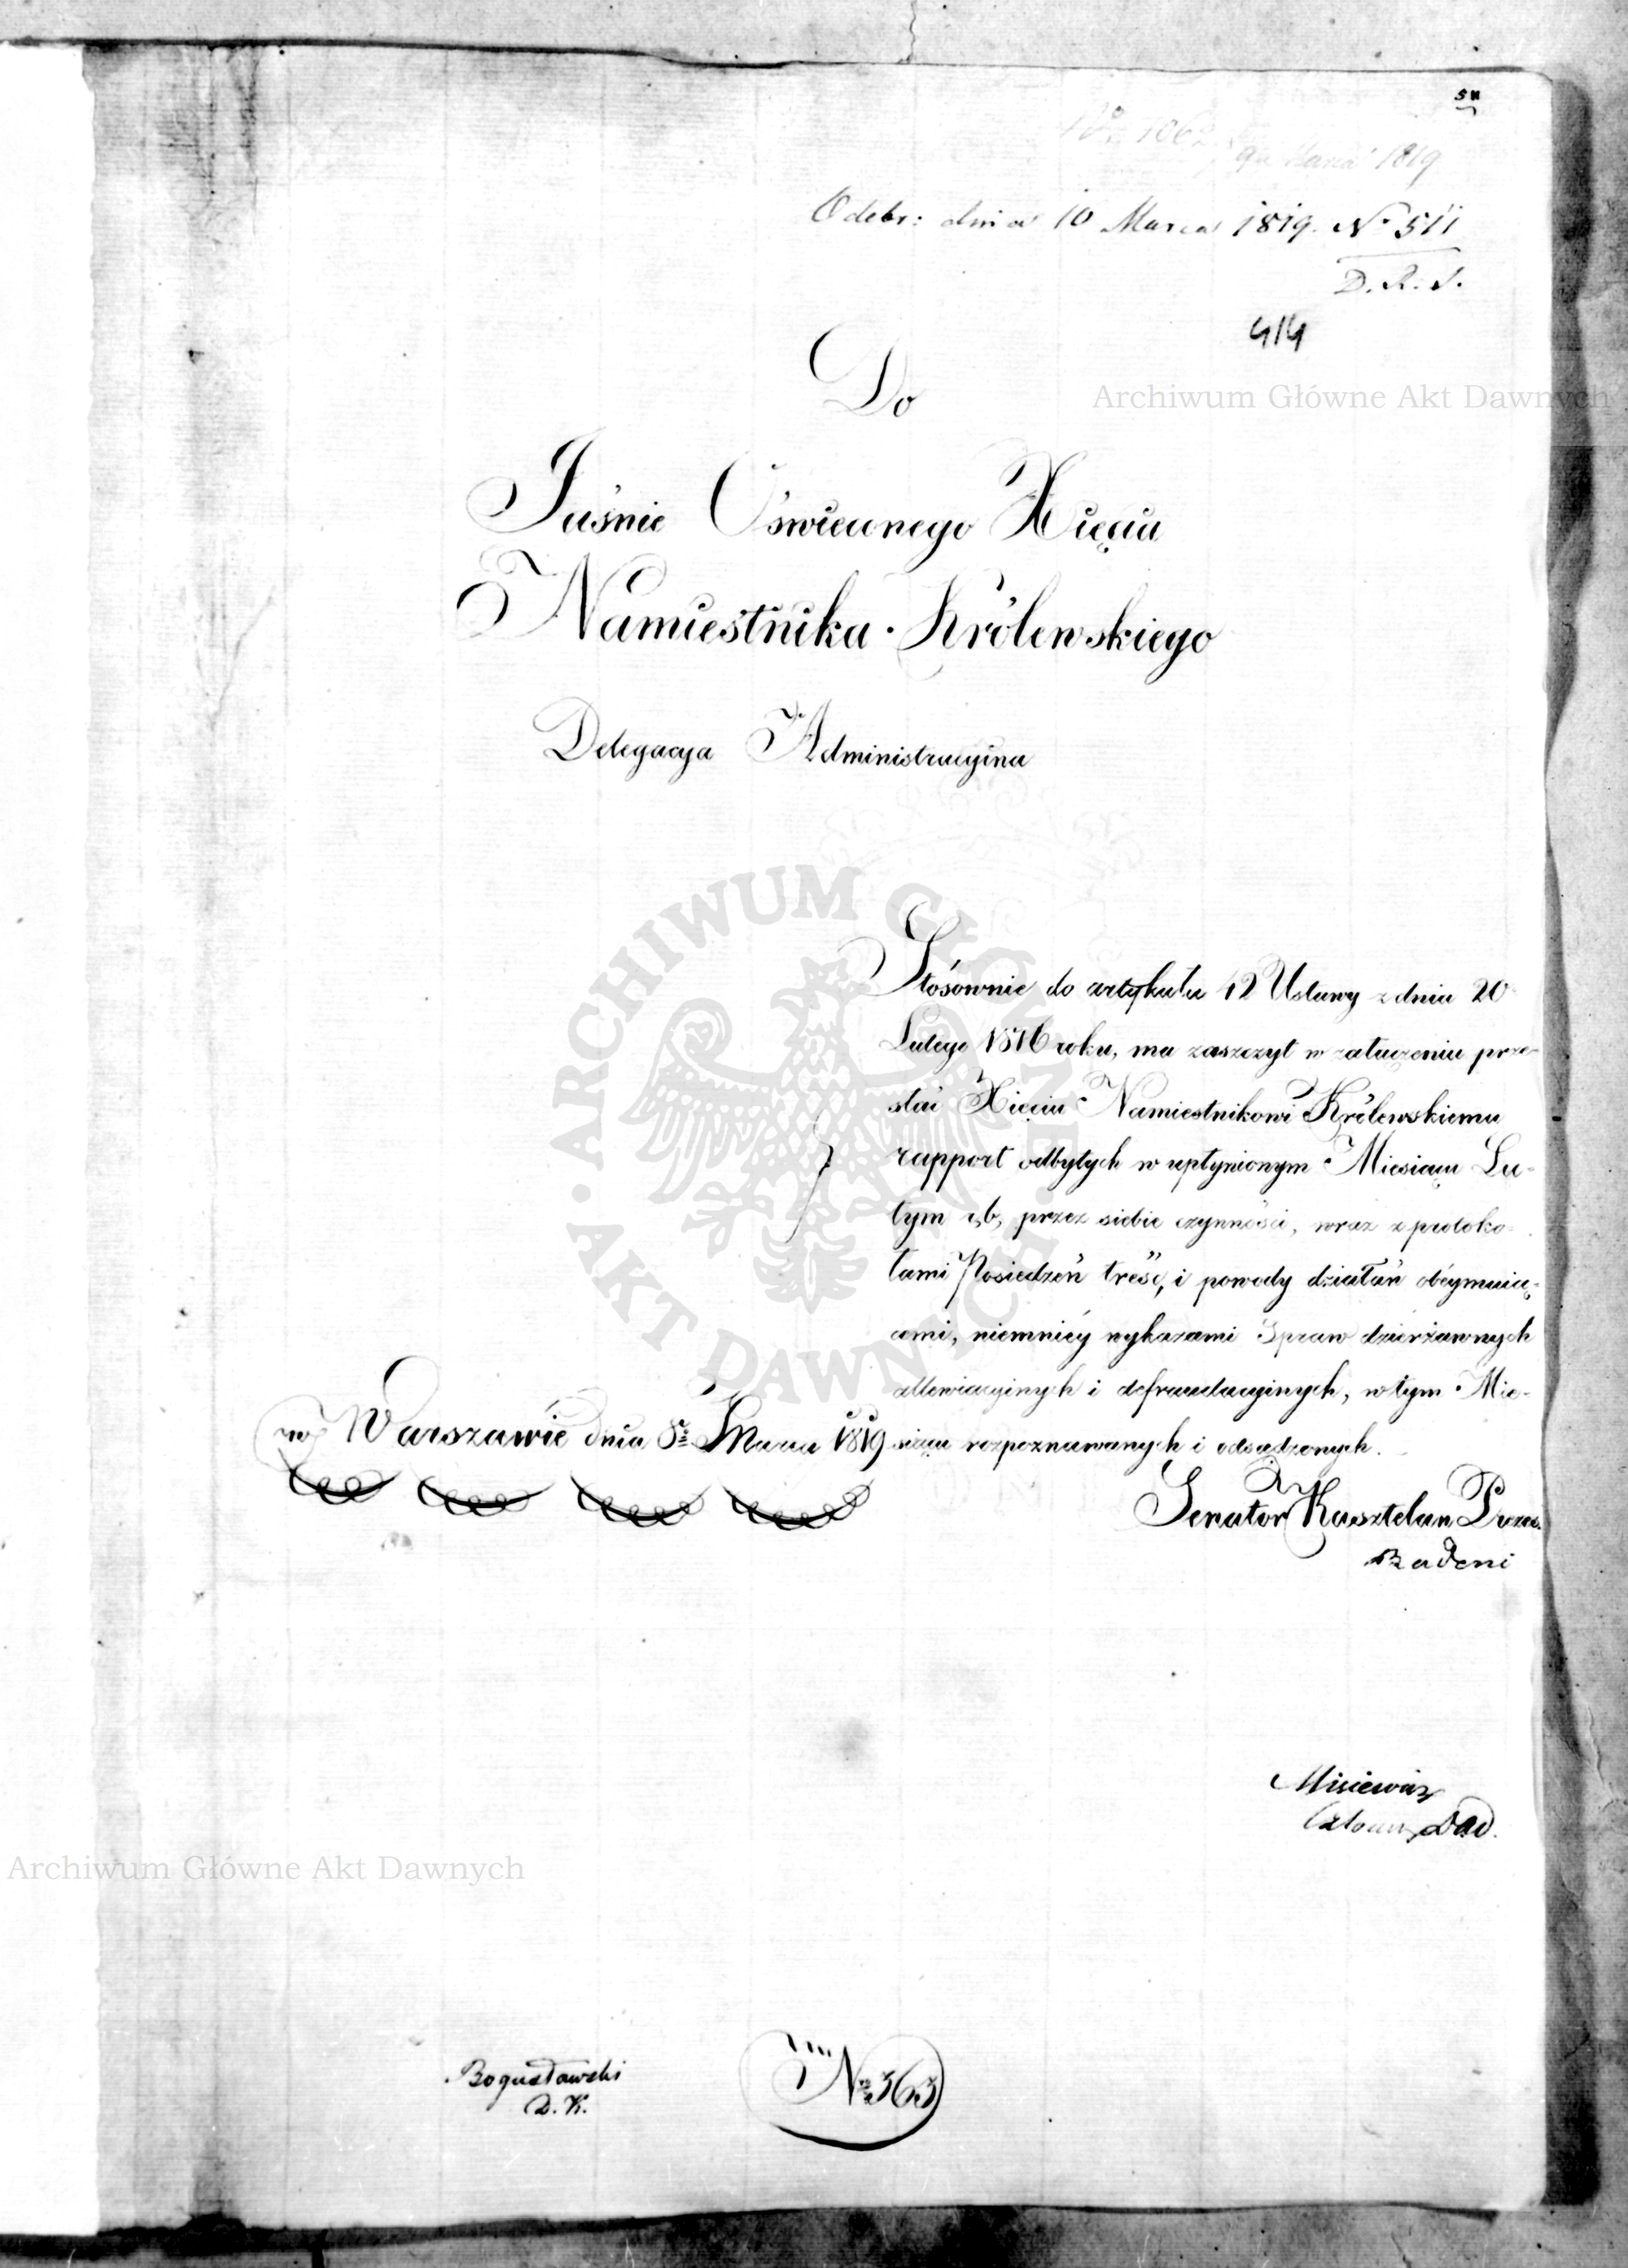 511
No 1062
9a Marca 1819
Odebr: dnia 10 Marca 1819. No 511
D. R. S.
414
Do
Jaśnie Oświeconego Xięcia
Namiestnika Królewskiego
Delegacya Administracyina
Stósownie do artykułu 12 Ustawy z dnia 20
Lutego 1816 roku, ma zaszczyt w załączeniu prze-
słać Xięciu Namiestnikowi Królewskiemu
rapport odbytych w upłynionym Miesiącu Lu-
tym r, b, przez siebie czynności, wraz z protoko-
łami Posiedzeń treść, i powody działań obeymuią-
cemi, niemniéy wykazami Spraw dzierżawnych
allewiacyinych i defraudacyinych, w tym Mie-
siącu rozpoznawanych i odsądzonych.
w Warszawie dnia 8o Marca 1819
Senator Kasztelan Prezes
Badeni
Misiewicz
Członek DAd.
Bogusławski
D. K.
No 363
Archiwum Główne Akt Dawnych
ARCHIWUM GŁÓWNE AKT DAWNYCH
Archiwum Główne Akt Dawnych